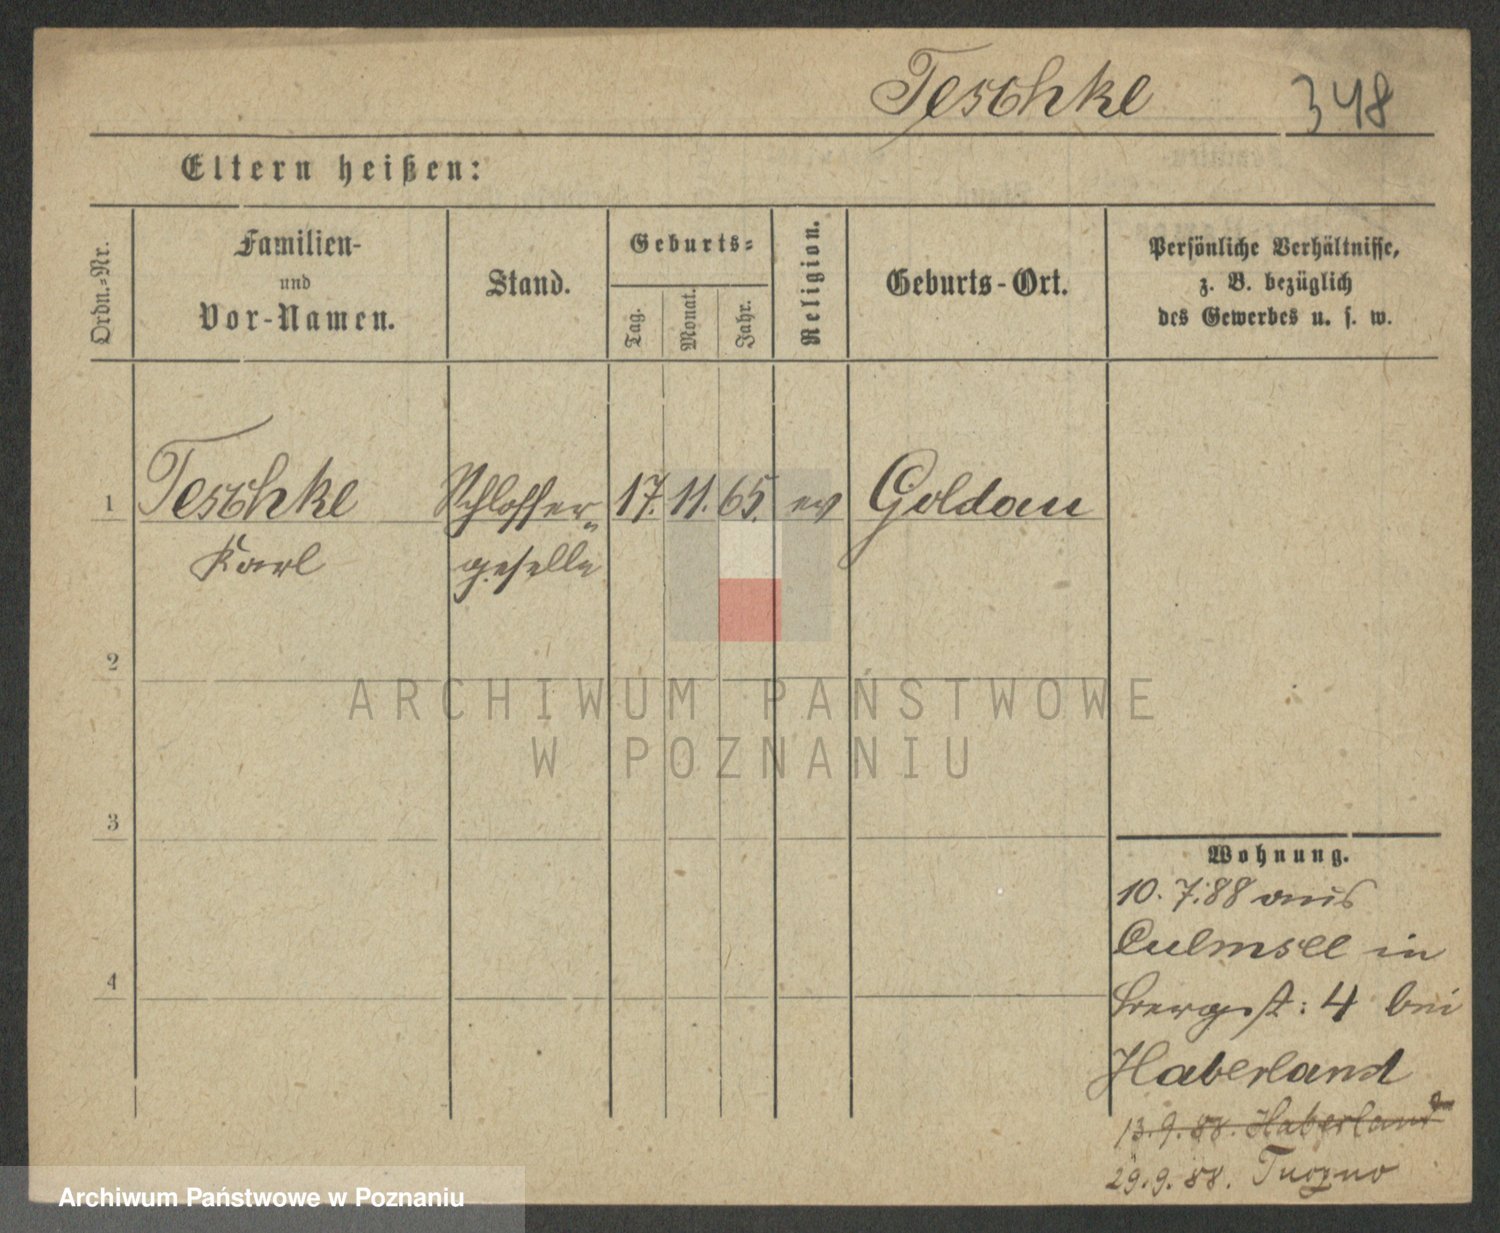 Teschke 348
Eltern heißen:
Ordn.-Nr.
Familien-
und
Vor-Namen.
Stand.
Geburts-
Tag.
Monat.
Jahr.
Religion.
Geburts-Ort.
Persönliche Verhältnisse,
z. B. bezüglich
des Gewerbes u. s. w.
1 Teschke Schlosser- 17. 11. 65. ev Goldau
Karl geselle
2
ARCHIWUM PAŃSTWOWE
W POZNANIU
3
Wohnung.
10. 7. 88 aus
Culmsee in
4
Bergst: 4 bei
Haberland
13. 9. 88. Haberland
29. 9. 88.
Archiwum Państwowe w Poznaniu